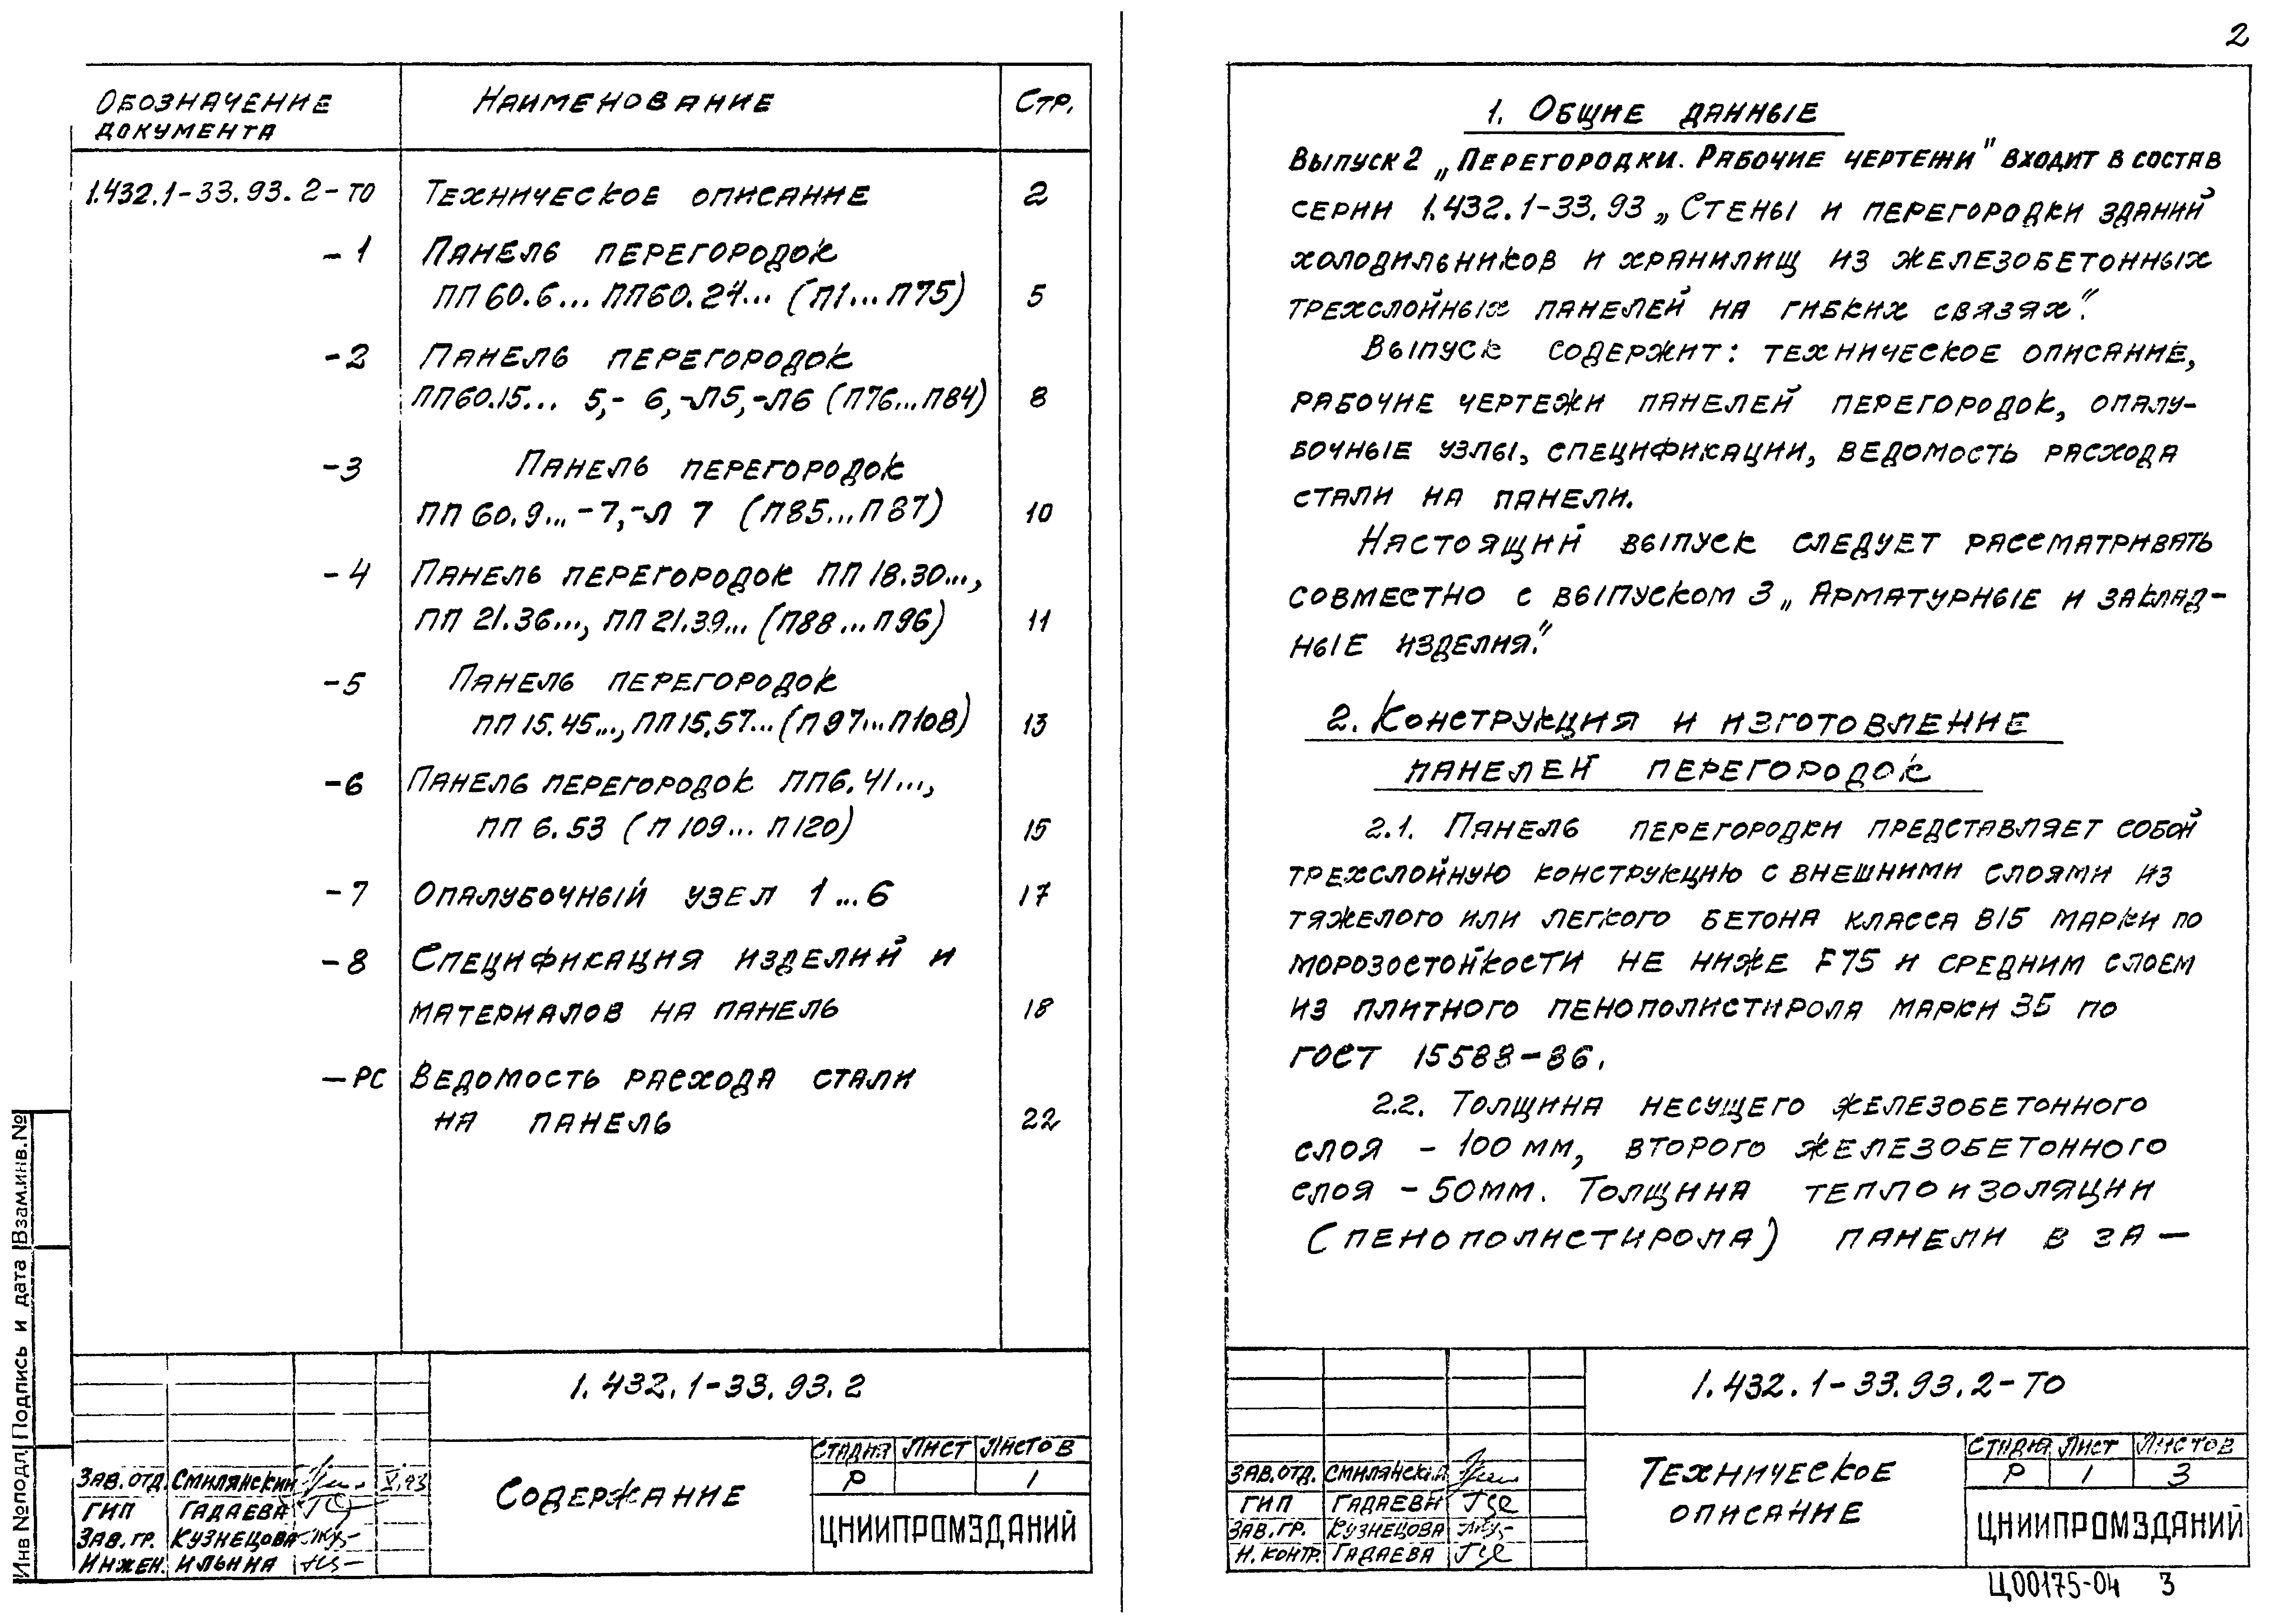 Обозначение документа Наименование Стр.
1.432.1-33.93.2-ТО Техническое описание 2
-1 Панель перегородок
ПП60.6... ПП60.24... (П1...П75) 5
-2 Панель перегородок
ПП60.15... 5,-6,-Л5,-Л6 (П76...П84) 8
-3 Панель перегородок
ПП60.9...-7,-Л 7 (П85...П87) 10
-4 Панель перегородок ПП18.30...,
ПП 21.36..., ПП21.39... (П88...П96) 11
-5 Панель перегородок
ПП15.45..., ПП15.57... (П97...П108) 13
-6 Панель перегородок ПП6.41...,
ПП 6.53 (П109... П120) 15
-7 Опалубочный узел 1...6 17
-8 Спецификация изделий и
материалов на панель 18
-РС Ведомость расхода стали
на панель 22
Инв №подл. Подпись и дата Взам.инв.№
1.432.1-33.93.2
Зав.отд. Смилянский V.93
ГИП Гадаева
Зав.гр. Кузнецова
Инжен. Ильина
Содержание
Стадия Лист Листов
Р 1
ЦНИИПРОМЗДАНИЙ
2
1. Общие данные
Выпуск 2 „Перегородки. Рабочие чертежи" входит в состав
серии 1.432.1-33.93 „Стены и перегородки зданий
холодильников и хранилищ из железобетонных
трехслойных панелей на гибких связях".
Выпуск содержит: техническое описание,
рабочие чертежи панелей перегородок, опалу-
бочные узлы, спецификации, ведомость расхода
стали на панели.
Настоящий выпуск следует рассматривать
совместно с выпуском 3 „Арматурные и заклад-
ные изделия".
2. Конструкция и изготовление
панелей перегородок
2.1. Панель перегородки представляет собой
трехслойную конструкцию с внешними слоями из
тяжелого или легкого бетона класса В15 марки по
морозостойкости не ниже F75 и средним слоем
из плитного пенополистирола марки 35 по
ГОСТ 15588-86.
2.2. Толщина несущего железобетонного
слоя - 100 мм, второго железобетонного
слоя - 50мм. Толщина теплоизоляции
(пенополистирола) панели в за-
1.432.1-33.93.2-ТО
Зав.отд. Смилянский
ГИП Гадаева
Зав.гр. Кузнецова
Н.контр. Гадаева
Техническое
описание
Стадия Лист Листов
Р 1 3
ЦНИИПРОМЗДАНИЙ
Ц00175-04 3